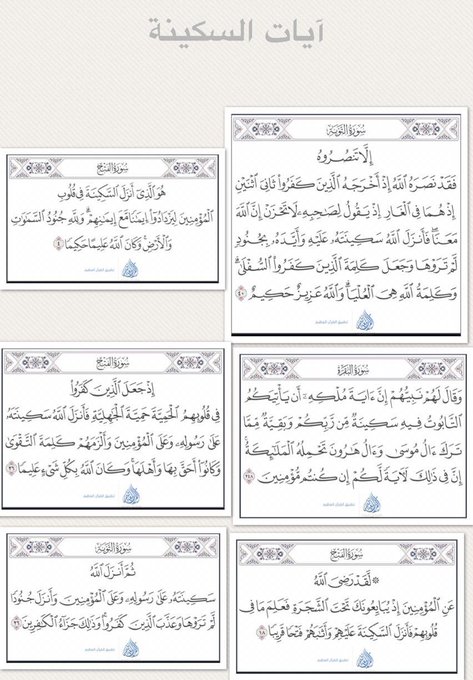 آيات السكينة
سُورَةُ التَّوْبَةِ
إِلَّا تَنصُرُوهُ
فَقَدْ نَصَرَهُ اللَّهُ إِذْ أَخْرَجَهُ الَّذِينَ كَفَرُوا ثَانِيَ اثْنَيْنِ
إِذْ هُمَا فِي الْغَارِ إِذْ يَقُولُ لِصَاحِبِهِ لَا تَحْزَنْ إِنَّ اللَّهَ
مَعَنَا فَأَنزَلَ اللَّهُ سَكِينَتَهُ عَلَيْهِ وَأَيَّدَهُ بِجُنُودٍ
لَّمْ تَرَوْهَا وَجَعَلَ كَلِمَةَ الَّذِينَ كَفَرُوا السُّفْلَىٰ
وَكَلِمَةُ اللَّهِ هِيَ الْعُلْيَا وَاللَّهُ عَزِيزٌ حَكِيمٌ ٤٠
تطبيق القرآن العظيم
سُورَةُ الْفَتْحِ
هُوَ الَّذِي أَنزَلَ السَّكِينَةَ فِي قُلُوبِ
الْمُؤْمِنِينَ لِيَزْدَادُوا إِيمَانًا مَّعَ إِيمَانِهِمْ وَلِلَّهِ جُنُودُ السَّمَاوَاتِ
وَالْأَرْضِ وَكَانَ اللَّهُ عَلِيمًا حَكِيمًا ٤
تطبيق القرآن العظيم
سُورَةُ الْبَقَرَةِ
وَقَالَ لَهُمْ نَبِيُّهُمْ إِنَّ ءَايَةَ مُلْكِهِ أَن يَأْتِيَكُمُ
التَّابُوتُ فِيهِ سَكِينَةٌ مِّن رَّبِّكُمْ وَبَقِيَّةٌ مِّمَّا
تَرَكَ ءَالُ مُوسَىٰ وَءَالُ هَارُونَ تَحْمِلُهُ الْمَلَائِكَةُ
إِنَّ فِي ذَٰلِكَ لَآيَةً لَّكُمْ إِن كُنتُم مُّؤْمِنِينَ ٢٤٨
تطبيق القرآن العظيم
سُورَةُ الْفَتْحِ
إِذْ جَعَلَ الَّذِينَ كَفَرُوا
فِي قُلُوبِهِمُ الْحَمِيَّةَ حَمِيَّةَ الْجَاهِلِيَّةِ فَأَنزَلَ اللَّهُ سَكِينَتَهُ
عَلَىٰ رَسُولِهِ وَعَلَى الْمُؤْمِنِينَ وَأَلْزَمَهُمْ كَلِمَةَ التَّقْوَىٰ
وَكَانُوا أَحَقَّ بِهَا وَأَهْلَهَا وَكَانَ اللَّهُ بِكُلِّ شَيْءٍ عَلِيمًا ٢٦
تطبيق القرآن العظيم
سُورَةُ الْفَتْحِ
۞ لَّقَدْ رَضِيَ اللَّهُ
عَنِ الْمُؤْمِنِينَ إِذْ يُبَايِعُونَكَ تَحْتَ الشَّجَرَةِ فَعَلِمَ مَا فِي
قُلُوبِهِمْ فَأَنزَلَ السَّكِينَةَ عَلَيْهِمْ وَأَثَابَهُمْ فَتْحًا قَرِيبًا ١٨
تطبيق القرآن العظيم
سُورَةُ التَّوْبَةِ
ثُمَّ أَنزَلَ اللَّهُ
سَكِينَتَهُ عَلَىٰ رَسُولِهِ وَعَلَى الْمُؤْمِنِينَ وَأَنزَلَ جُنُودًا
لَّمْ تَرَوْهَا وَعَذَّبَ الَّذِينَ كَفَرُوا وَذَٰلِكَ جَزَاءُ الْكَافِرِينَ ٢٦
تطبيق القرآن العظيم